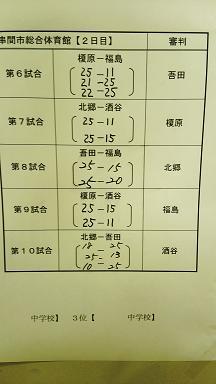 串間市総合体育館【２日目】 審判
第６試合 榎原－福島 吾田
25－11
21－25
22－25
第７試合 北郷－酒谷 榎原
25－11
25－15
第８試合 吾田－福島 北郷
25－15
25－20
第９試合 榎原－酒谷 福島
25－15
25－11
第１０試合 北郷－吾田 酒谷
18－25
25－13
10－25
中学校】 ３位【 中学校】